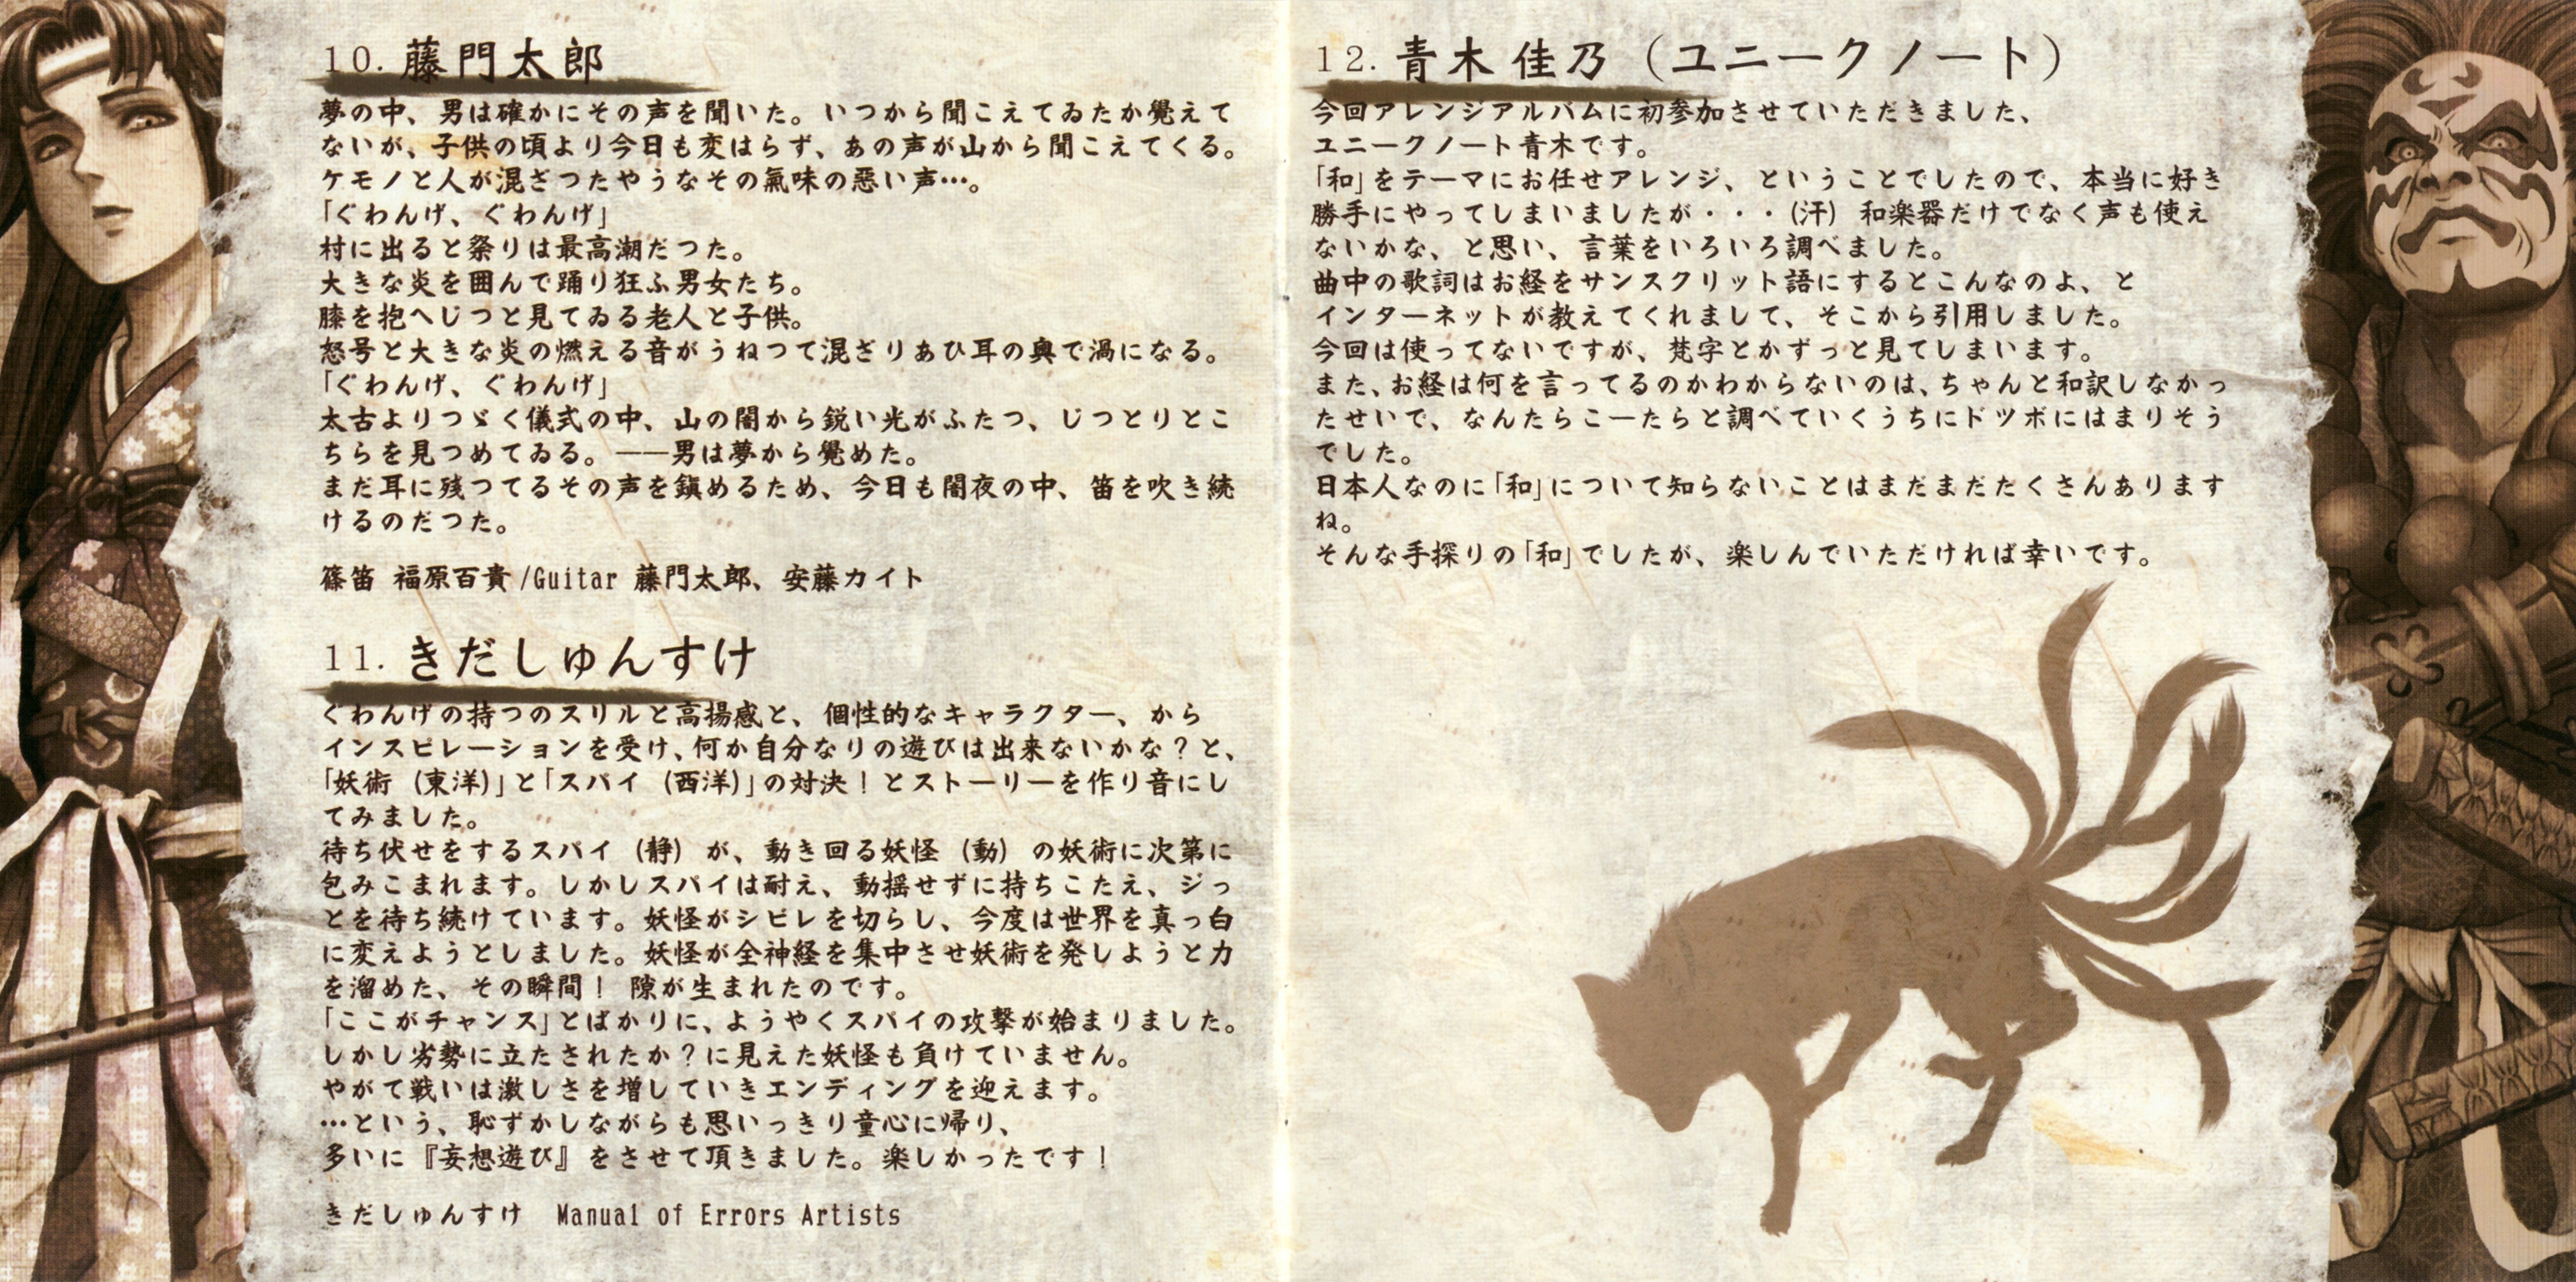 10. 藤門太郎
夢の中、男は確かにその声を聞いた。いつから聞こえてゐたか覺えて
ないが、子供の頃より今日も変はらず、あの声が山から聞こえてくる。
ケモノと人が混ざつたやうなその氣味の悪い声…。
「ぐわんげ、ぐわんげ」
村に出ると祭りは最高潮だつた。
大きな炎を囲んで踊り狂ふ男女たち。
膝を抱へじつと見てゐる老人と子供。
怒号と大きな炎の燃える音がうねつて混ざりあひ耳の奥で渦になる。
「ぐわんげ、ぐわんげ」
太古よりつゞく儀式の中、山の闇から鋭い光がふたつ、じつとりとこ
ちらを見つめてゐる。――男は夢から覺めた。
まだ耳に残つてるその声を鎭めるため、今日も闇夜の中、笛を吹き続
けるのだつた。
篠笛 福原百貴/Guitar 藤門太郎、安藤カイト
11. きだしゅんすけ
ぐわんげの持つのスリルと高揚感と、個性的なキャラクター、から
インスピレーションを受け、何か自分なりの遊びは出来ないかな？と、
「妖術（東洋）」と「スパイ（西洋）」の対決！とストーリーを作り音にし
てみました。
待ち伏せをするスパイ（静）が、動き回る妖怪（動）の妖術に次第に
包みこまれます。しかしスパイは耐え、動揺せずに持ちこたえ、ジッ
とを待ち続けています。妖怪がシビレを切らし、今度は世界を真っ白
に変えようとしました。妖怪が全神経を集中させ妖術を発しようと力
を溜めた、その瞬間！ 隙が生まれたのです。
「ここがチャンス」とばかりに、ようやくスパイの攻撃が始まりました。
しかし劣勢に立たされたか？に見えた妖怪も負けていません。
やがて戦いは激しさを増していきエンディングを迎えます。
…という、恥ずかしながらも思いっきり童心に帰り、
多いに『妄想遊び』をさせて頂きました。楽しかったです！
きだしゅんすけ Manual of Errors Artists
12. 青木 佳乃（ユニークノート）
今回アレンジアルバムに初参加させていただきました、
ユニークノート青木です。
「和」をテーマにお任せアレンジ、ということでしたので、本当に好き
勝手にやってしまいましたが・・・（汗） 和楽器だけでなく声も使え
ないかな、と思い、言葉をいろいろ調べました。
曲中の歌詞はお経をサンスクリット語にするとこんなのよ、と
インターネットが教えてくれまして、そこから引用しました。
今回は使ってないですが、梵字とかずっと見てしまいます。
また、お経は何を言ってるのかわからないのは、ちゃんと和訳しなかっ
たせいで、なんたらこーたらと調べていくうちにドツボにはまりそう
でした。
日本人なのに「和」について知らないことはまだまだたくさんあります
ね。
そんな手探りの「和」でしたが、楽しんでいただければ幸いです。